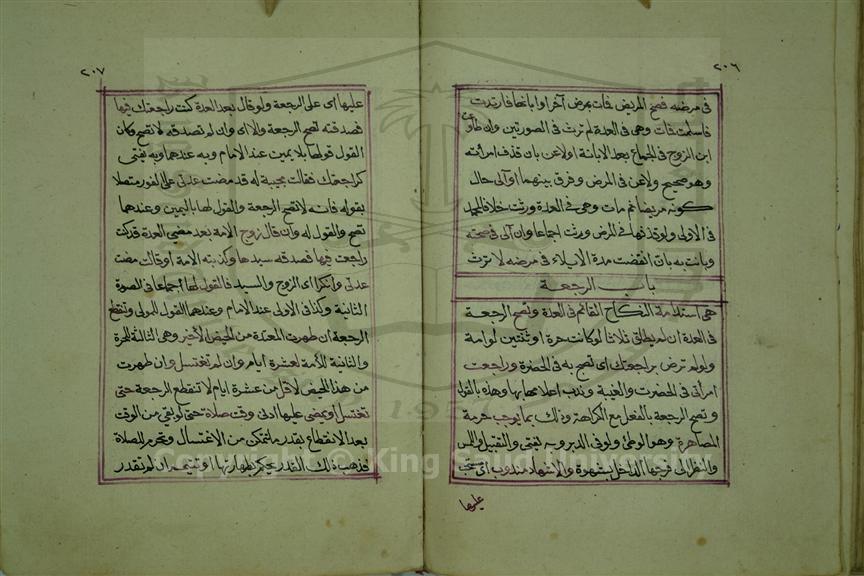 ٢٠٦
فى مرضه فصح المريض فمات بمرض آخر او ابانها فارتدت
فاسلمت فمات وهى فى العدة لم ترث فى الصورتين وان طاوعت
ابن الزوج فى الجماع بعد الابانة او لاعن بان قذف امرأته
وهو صحيح ولاعن فى المرض وفرق بينهما او آلى حال
كونه مريضا ثم مات وهى فى العدة ورثت خلافا لمحمد
فى الاولى ولو قذفها فى المرض ورثت اجماعا وان آلى فى صحته
وبانت به بان انقضت مدة الايلاء فى مرضه لا ترث
باب الرجعة
هى استدامة النكاح القائم فى العدة وتصح الرجعة
فى العدة ان لم يطلق ثلاثا لو كانت حرة او ثنتين لو امة
ولو لم ترض براجعتك اى تصح به فى الحضرة وراجعت
امرأتى فى الحضرت والغيبة وندب اعلامها بها وهذه بالقول
وتصح الرجعة بالفعل مع الكراهة وذلك بما يوجب حرمة
المصاهرة وهو الوطئ ولو فى الدبر وبه يفتى والتقبيل واللمس
والنظر الى فرجها الداخل بشهوة والاشهاد مندوب اى مستحب
عليها
٢٠٧
عليها اى على الرجعة ولو قال بعد العدة كنت راجعتك فيها
فصدقته تصح الرجعة والا اى وان لم تصدقه لا تصح فكان
القول قولها بلا يمين عند الامام وبه عندهما وبه يفتى
كراجعتك فقالت مجيبة له قد مضت عدتى على الفور متصلا
بقوله فانه لا تصح الرجعة والقول لها باليمين وعندهما
تصح والقول له وان قال زوج الامة بعد مضى العدة قد كنت
راجعت فيها فصدقه سيدها وكذبته الامة او قالت مضت
عدتى وانكرا اى الزوج والسيد فالقول لها اجماعا فى الصورة
الثانية وكذا فى الاولى عند الامام وعندهما القول للمولى وتنقطع
الرجعة ان طهرت المعتدة من الحيض الأخير وهى الثالثة للحرة
والثانية للأمة لعشرة ايام وان لم تغتسل وان طهرت
من هذا الحيض لاقل من عشرة ايام لا تنقطع الرجعة حتى
تغتسل او يمضى عليها ادنى وقت صلاة حتى لو بقى من الوقت
بعد الانقطاع بقدر ما تتمكن من الاغتسال وتحرم للصلاة
فذهب ذلك القدر يحكم بطهارتها او تتيمم ان لم تقدر
Copyright © King Saud University